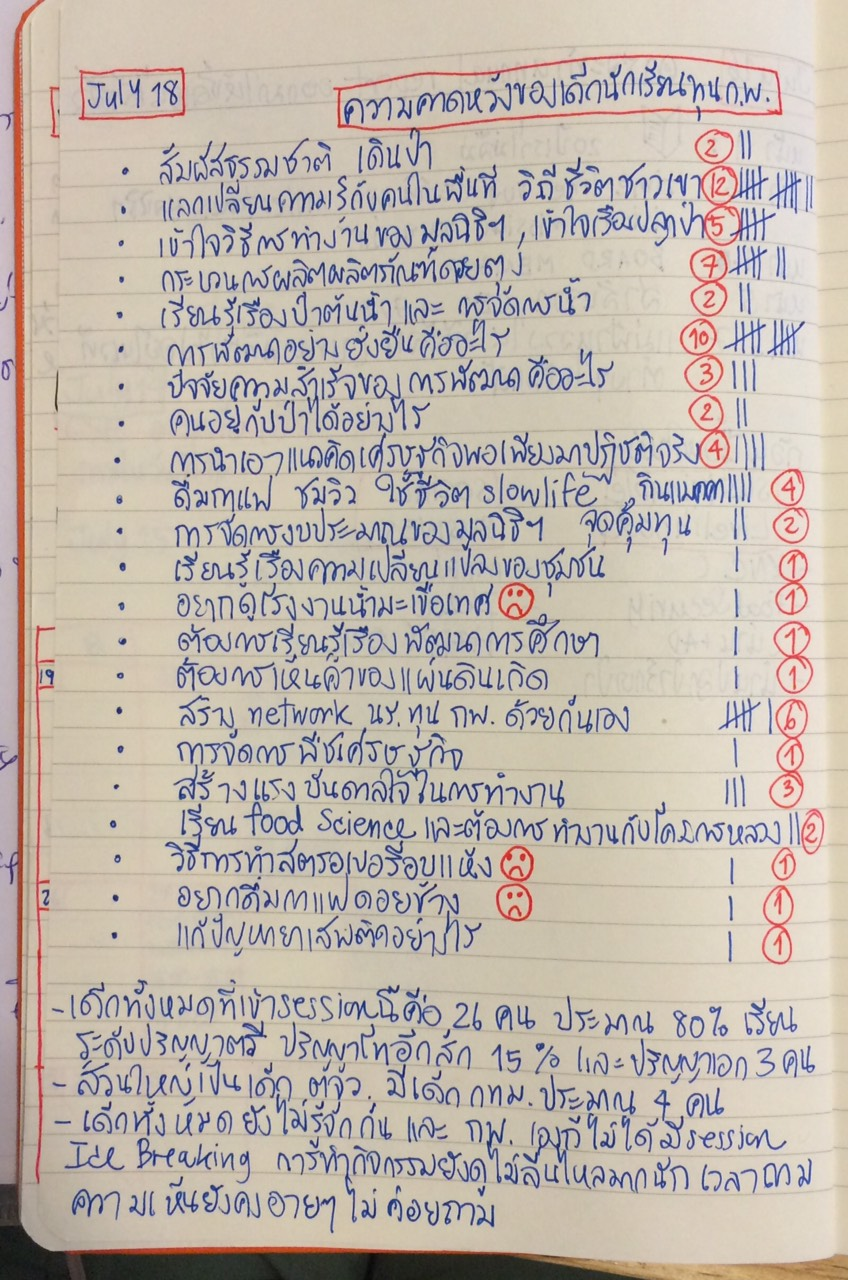 July 18
ความคาดหวังของเด็กนักเรียนทุน ก.พ.
• สัมผัสธรรมชาติ เดินป่า 2 ||
• แลกเปลี่ยนความรู้กับคนในพื้นที่ วิถีชีวิตชาวเขา 12 |||| |||| ||
• เข้าใจวิธีการทำงานของมูลนิธิฯ, เข้าใจเรื่องปลูกป่า 5 ||||
• กระบวนการผลิตผลิตภัณฑ์ดอยตุง 7 |||| ||
• เรียนรู้เรื่องป่าต้นน้ำ และ การจัดการน้ำ 2 ||
• การพัฒนาอย่างยั่งยืนคืออะไร 10 |||| ||||
• ปัจจัยความสำเร็จของการพัฒนาคืออะไร 3 |||
• คนอยู่กับป่าได้อย่างไร 2 ||
• การนำเอาแนวคิดเศรษฐกิจพอเพียงมาปฏิบัติจริง 4 ||||
• ดื่มกาแฟ ชมวิว ใช้ชีวิต slowlife กินแมคคา |||| 4
• การจัดการงบประมาณของมูลนิธิฯ จุดคุ้มทุน || 2
• เรียนรู้เรื่องความเปลี่ยนแปลงของชุมชน | 1
• อยากดูโรงงานน้ำมะเขือเทศ | 1
• ต้องการเรียนรู้เรื่องพัฒนาการศึกษา | 1
19
• ต้องการเห็นค่าของแผ่นดินเกิด | 1
• สร้าง network นร. ทุน กพ. ด้วยกันเอง |||| | 6
• การจัดการพืชเศรษฐกิจ | 1
• สร้างแรงบันดาลใจในการทำงาน ||| 3
• เรียน food science และต้องการทำงานกับโครงการหลวง || 2
• วิธีการทำสตรอเบอรี่อบแห้ง | 1
2
• อยากดื่มกาแฟดอยช้าง | 1
• แก้ปัญหายาเสพติดอย่างไร | 1
- เด็กทั้งหมดที่เข้า session นี้คือ 26 คน ประมาณ 80% เรียน
ระดับปริญญาตรี ปริญญาโทอีกสัก 15% และปริญญาเอก 3 คน
- ส่วนใหญ่เป็นเด็ก ตจว. มีเด็ก กทม. ประมาณ 4 คน
- เด็กทั้งหมดยังไม่รู้จักกัน และ กพ. เองก็ไม่ได้มี session
Ice Breaking การทำกิจกรรมยังดูไม่ลื่นไหลมากนัก เวลาถาม
ความเห็นยังคงอายๆ ไม่ค่อยถาม